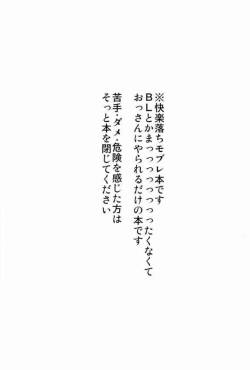 ※快楽落ちモブレ本です
BLとかまっっっっっっったくなくて
おっさんにやられるだけの本です
苦手・ダメ・危険を感じた方は
そっと本を閉じてください